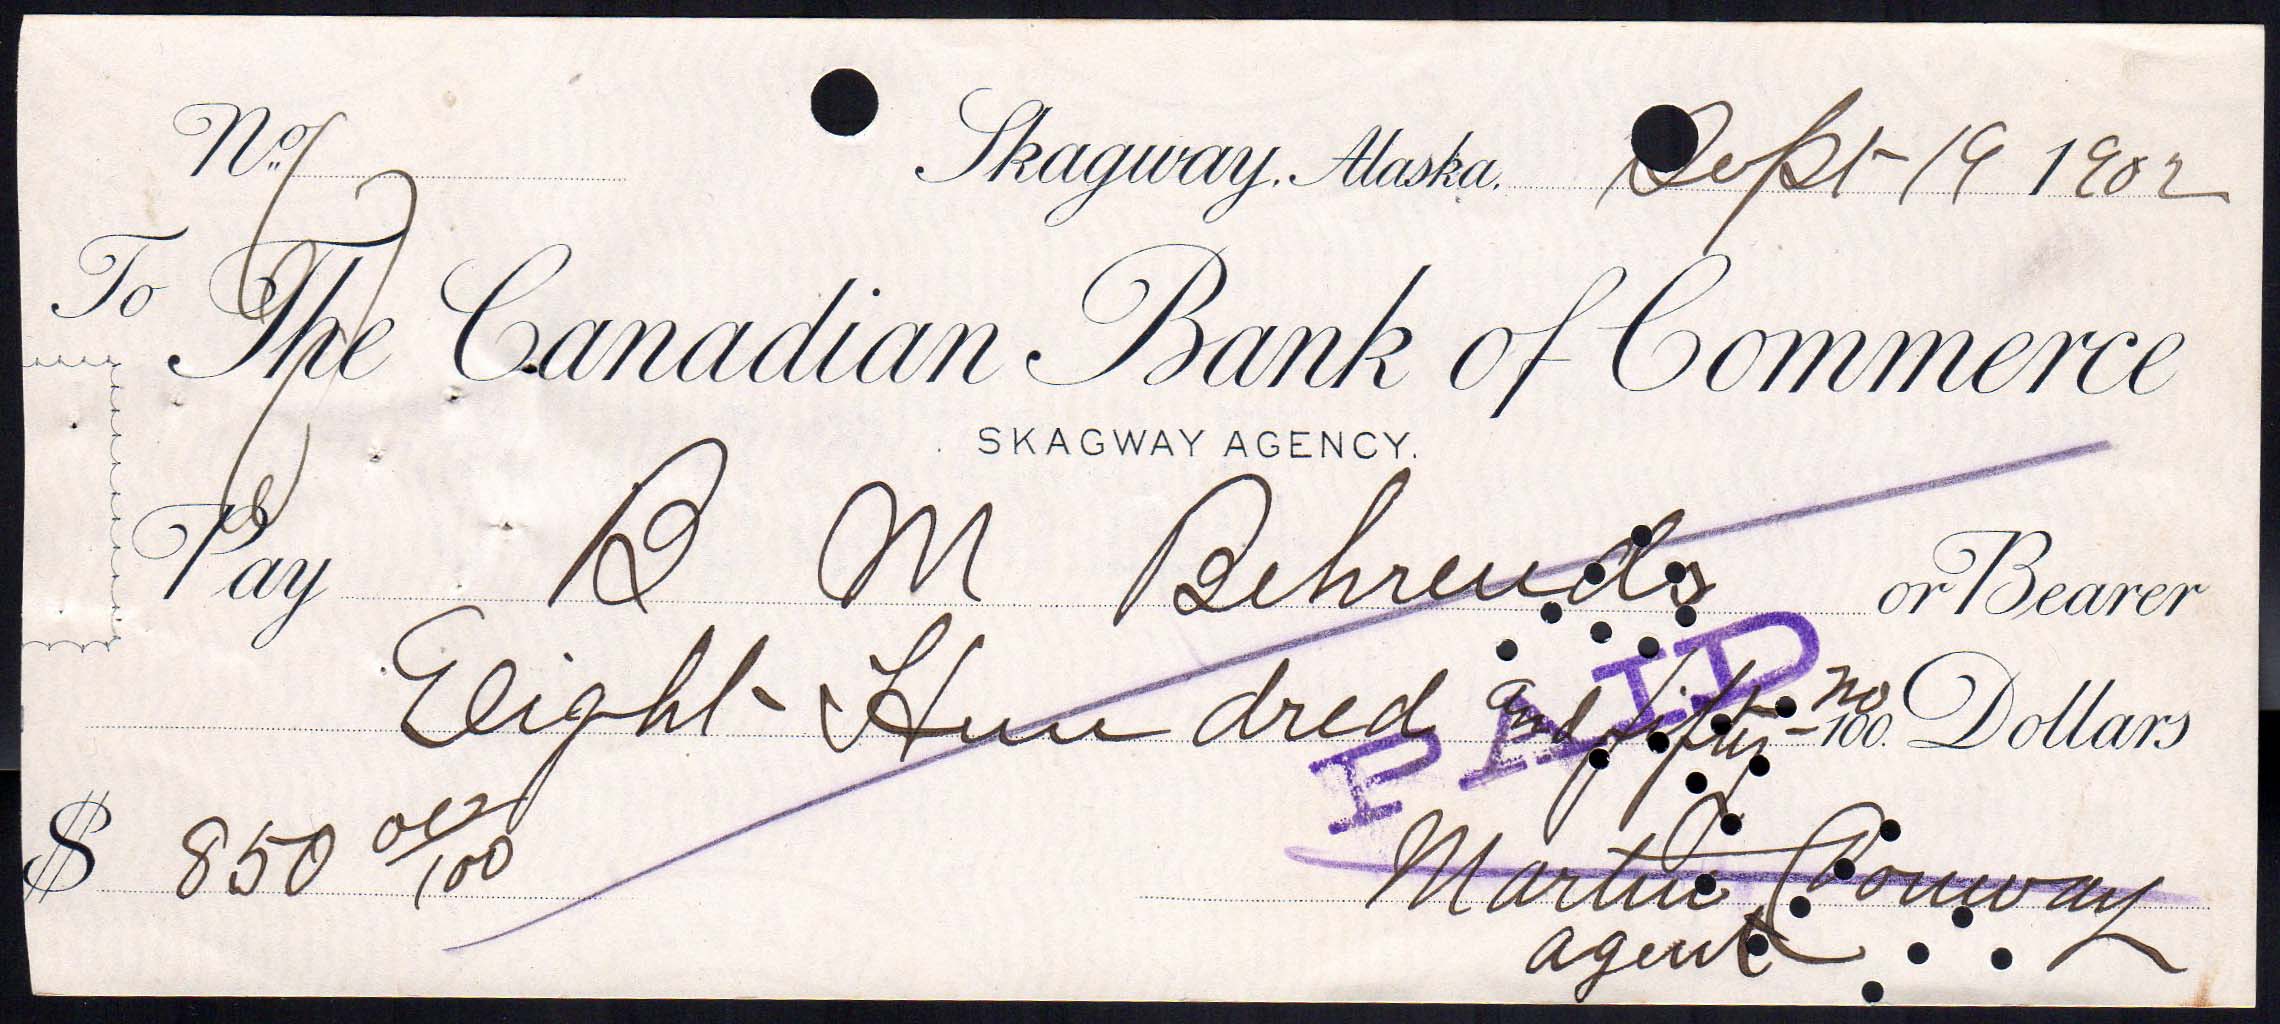 No. Skagway, Alaska. Sept 19 1902
To The Canadian Bank of Commerce
SKAGWAY AGENCY.
Pay B M Behrends or Bearer
Eight Hundred and fifty no/100 Dollars
PAID
$ 850 00/100
Martin Conway
agent